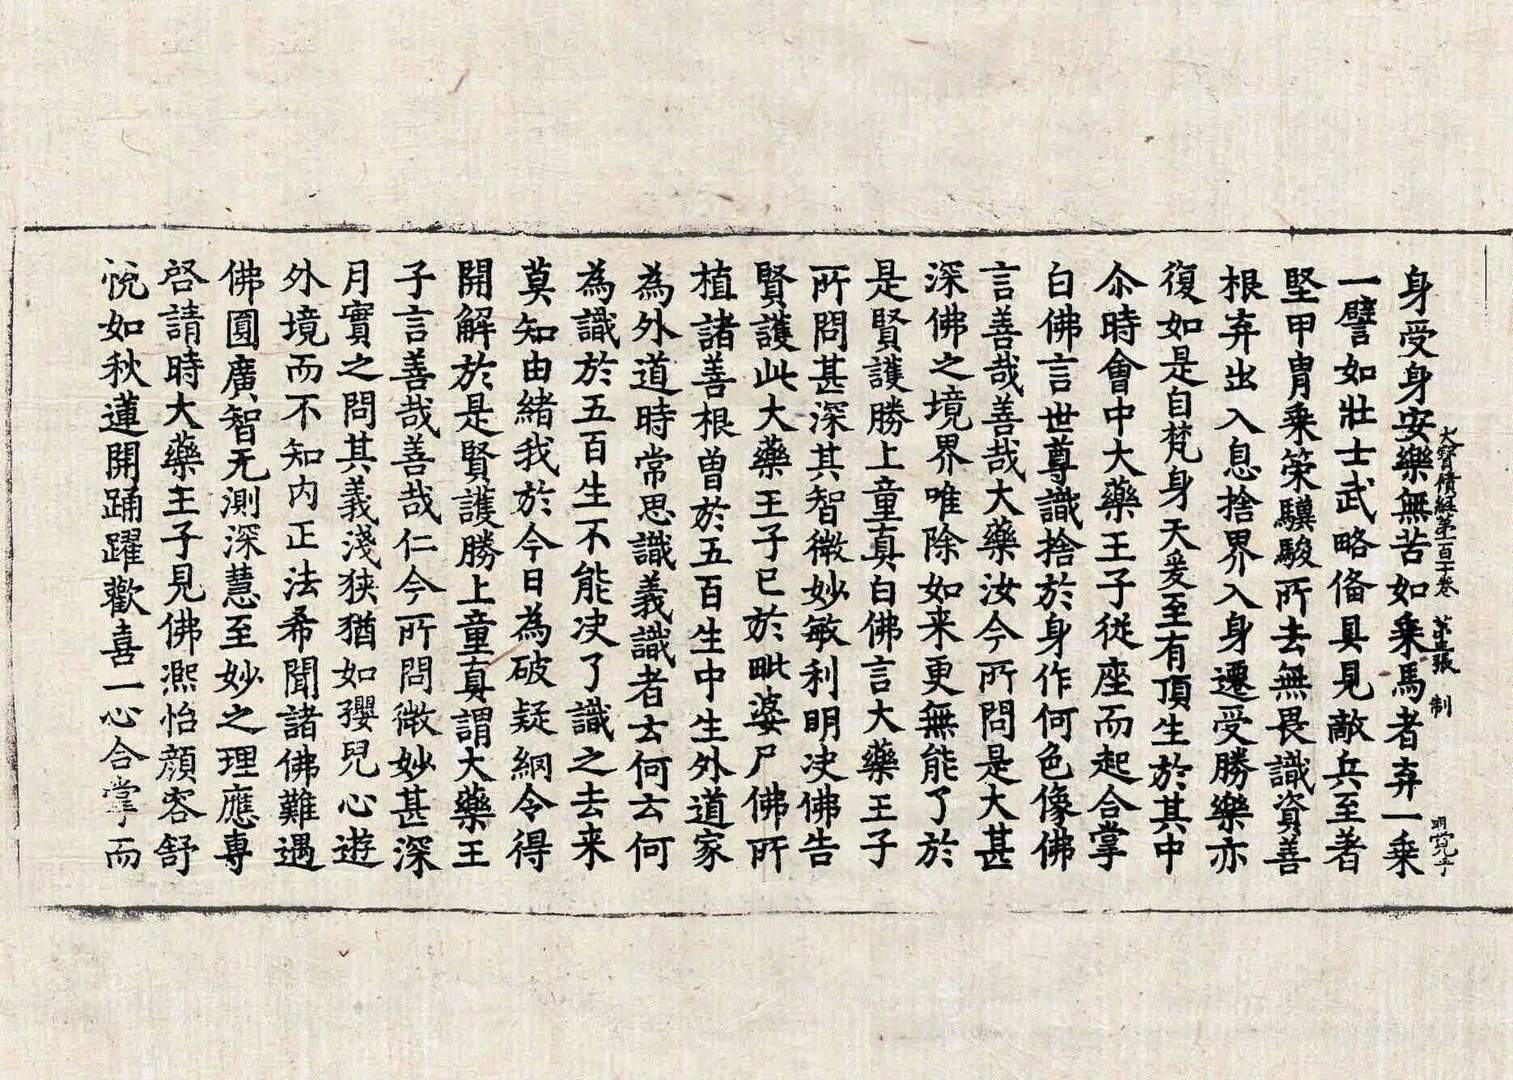 大寶積經第一百十卷 第五張 制
身受身安樂無苦如乘馬者弃一乘
一譬如壯士武略俻具見敵兵至著
堅甲冑乘策驥駿所去無畏識資善
根弃出入息捨界入身遷受勝樂亦
復如是自梵身天爰至有頂生於其中
尒時會中大藥王子從座而起合掌
白佛言世尊識捨於身作何色像佛
言善哉善哉大藥汝今所問是大甚
深佛之境界唯除如来更無能了於
是賢護勝上童真白佛言大藥王子
所問甚深其智微妙敏利明决佛告
賢護此大藥王子已於毗婆尸佛所
植諸善根曾於五百生中生外道家
為外道時常思識義識者云何云何
為識於五百生不能决了識之去来
莫知由緒我於今日為破疑網令得
開解於是賢護勝上童真謂大藥王
子言善哉善哉仁今所問微妙甚深
月實之問其義淺狹猶如孾兒心遊
外境而不知内正法希聞諸佛難遇
佛圓廣智无測深慧至妙之理應專
啓請時大藥王子見佛熈怡顔容舒
悅如秋蓮開踊躍歡喜一心合掌而